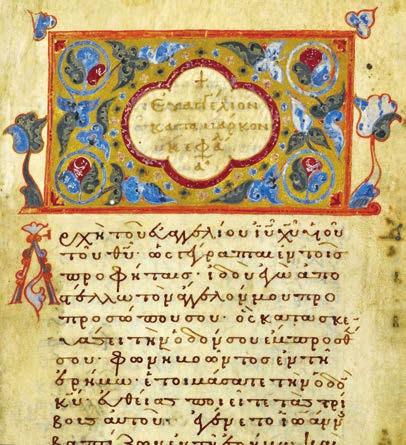 +
ΕΥΑΓΓΕΛΙΟΝ
ΚΑΤΑ ΜΑΡΚΟΝ
ΚΕΦΑ
Α
Ἀρχὴ τοῦ εὐαγγελίου ἰυ χυ υἱοῦ
τοῦ θυ· ὡς γέγραπται ἐν τοῖς
προφήταις· ἰδοὺ ἐγὼ ἀπο
στέλλω τὸν ἄγγελόν μου πρὸ
προσώπου σου· ὃς κατασκε
υάσει τὴν ὁδόν σου ἔμπροσθέν
σου· φωνὴ βοῶντος ἐν τῇ
ἐρήμω· ἑτοιμάσατε τὴν ὁδὸ
κυ· εὐθείας ποιεῖτε τὰς τρί
βους αὐτοῦ· ἐγένετο ἰωάνν
βαπτίζων ἐν τῇ ἐρήμω· καὶ